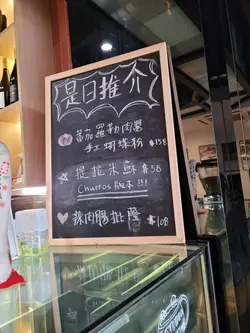 是日推介
蕃茄羅勒肉醬
手工蝴蝶粉 $158
提拉米酥 $58
Churros 版本!!!
辣肉腸批薩 $108